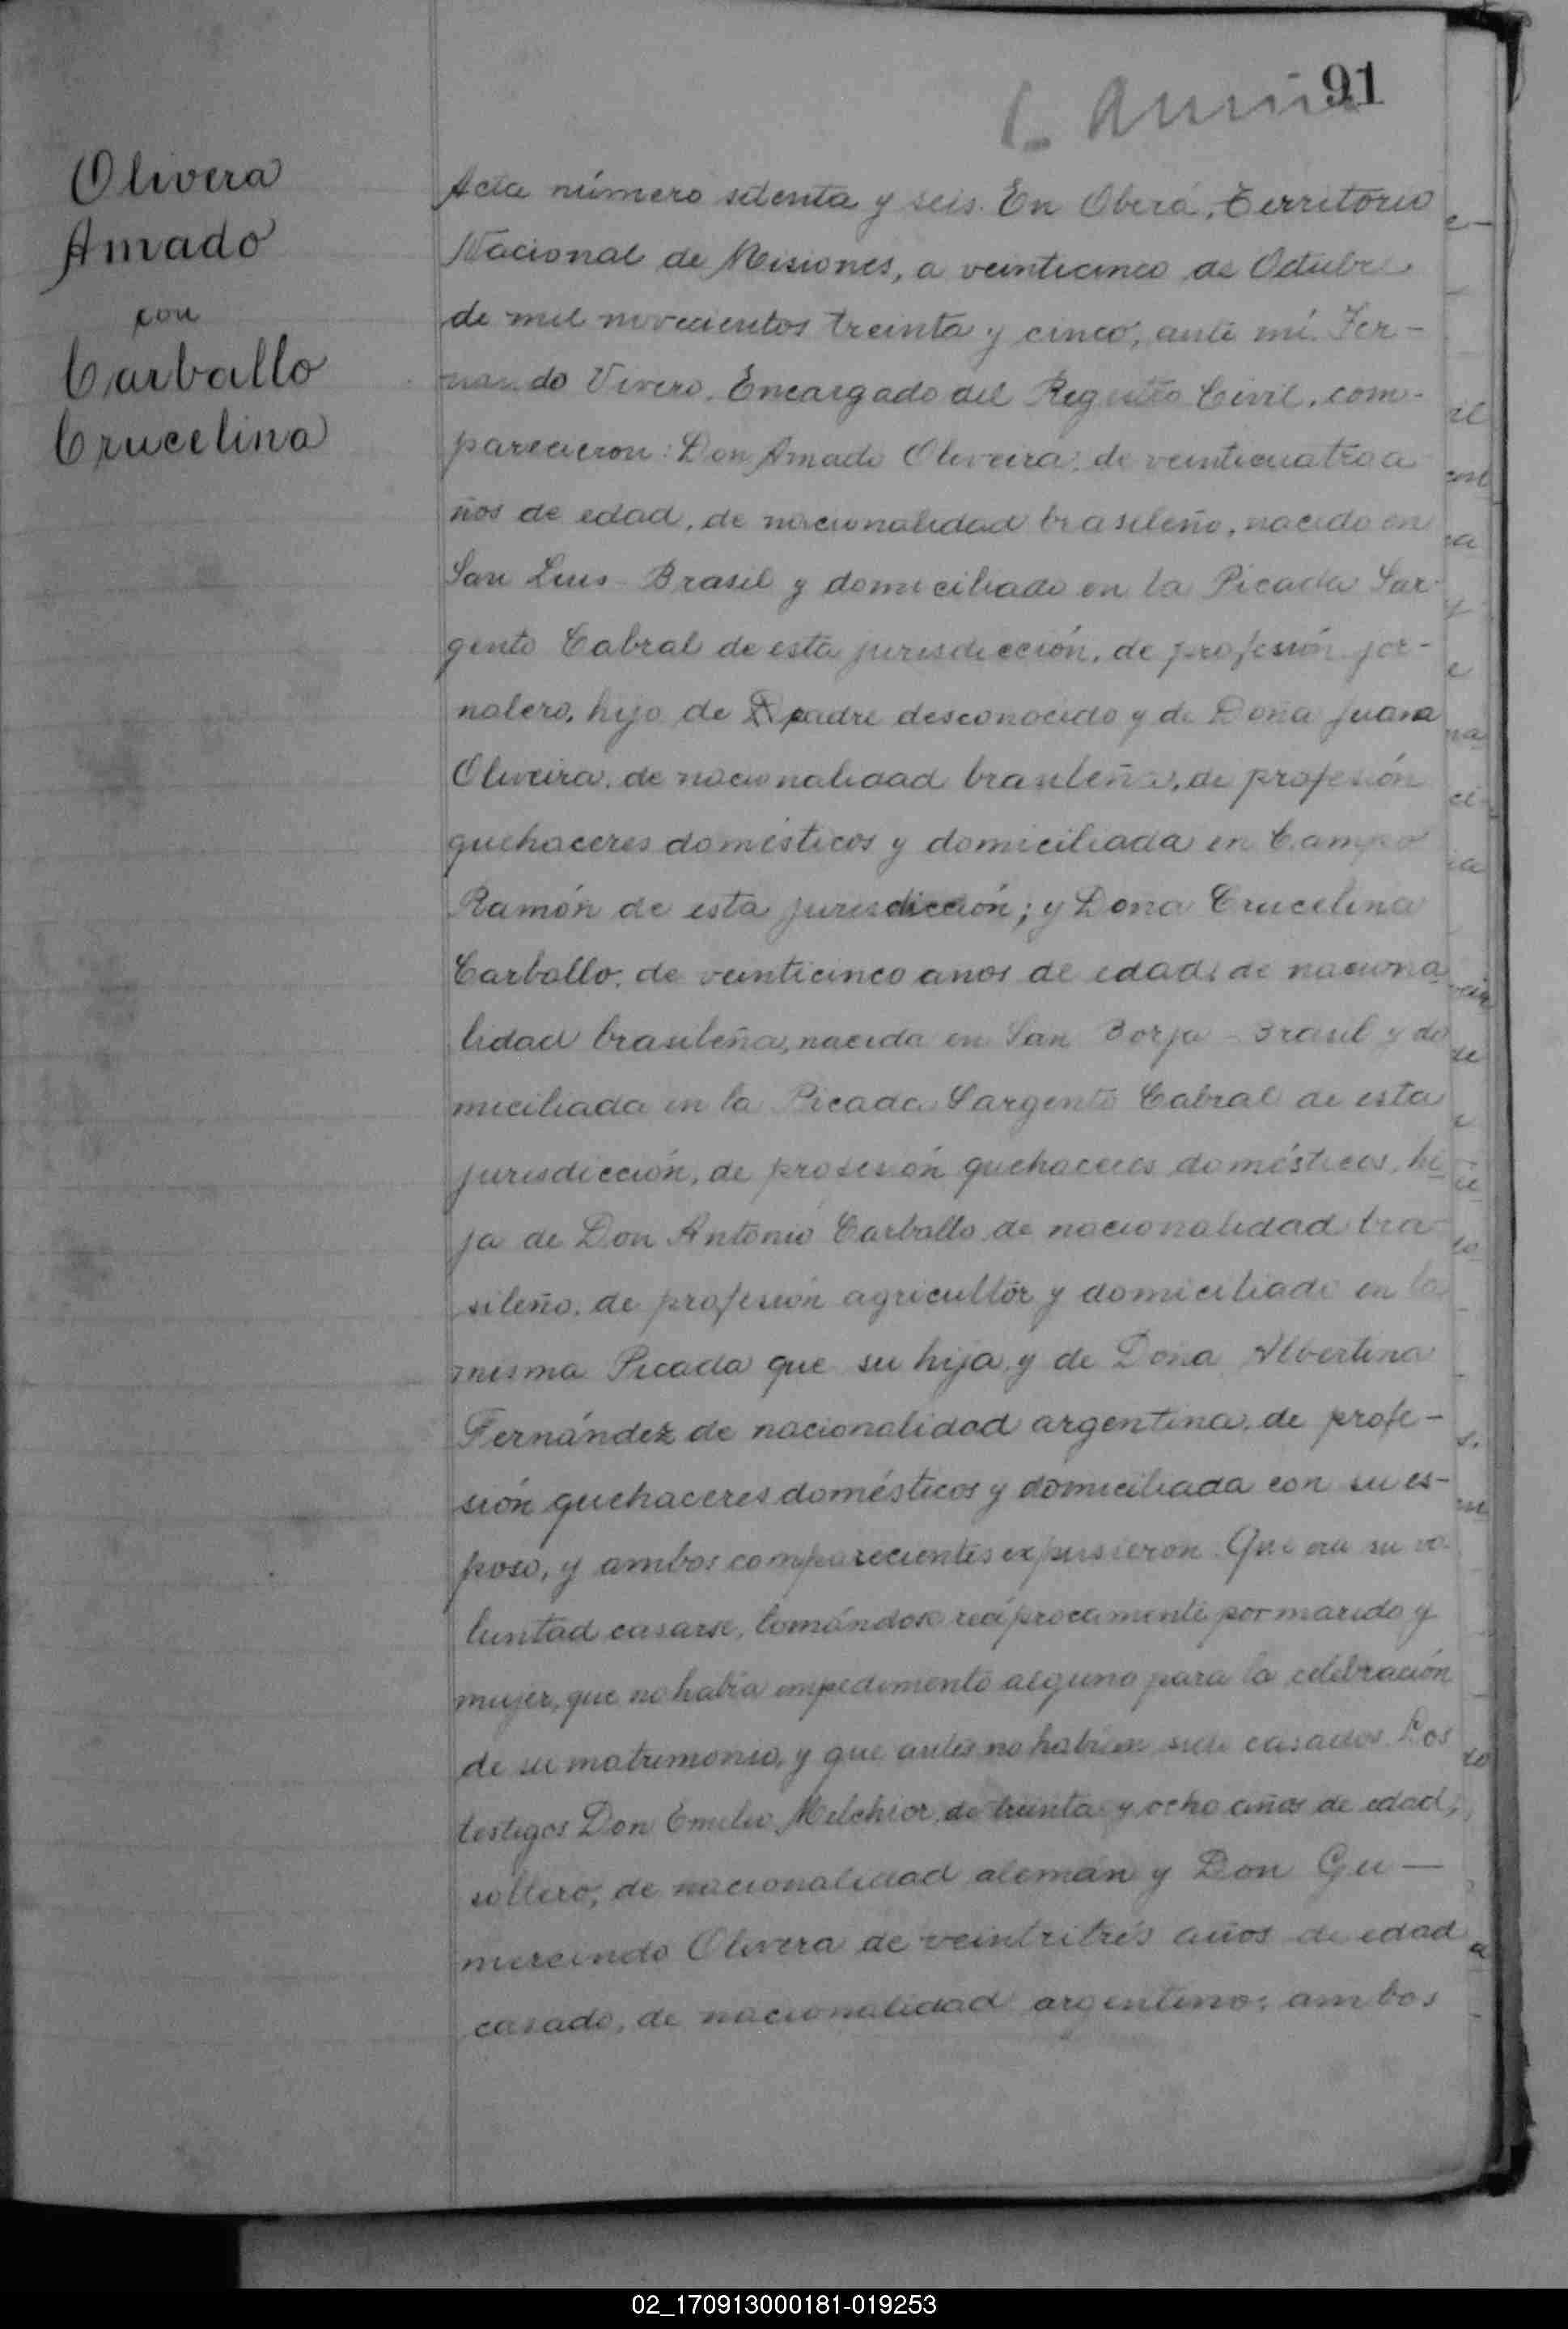 91
Olivera
Amado
con
Carballo
Crucelina
Acta número setenta y seis. En Oberá, Territorio
Nacional de Misiones, a veinticinco de Octubre
de mil novecientos treinta y cinco, ante mí Fer-
nando Vivero, Encargado del Registro Civil, com-
parecieron: Don Amado Oliveira, de veinticuatro a
ños de edad, de nacionalidad brasileño, nacido en
San Luis - Brasil y domiciliado en la Picada Sar-
gento Cabral de esta jurisdicción, de profesión jor-
nalero, hijo de padre desconocido y de Doña Juana
Oliveira, de nacionalidad brasileña, de profesión
quehaceres domésticos y domiciliada en Campo
Ramón de esta jurisdicción; y Doña Crucelina
Carballo, de veinticinco anos de edad, de naciona
lidad brasileña, nacida en San Borja - Brasil y do
miciliada en la Picada Sargento Cabral de esta
jurisdicción, de profesión quehaceres domésticos, hi
ja de Don Antonio Carballo de nacionalidad bra-
sileño, de profesión agricultór y domiciliado en la
misma Picada que su hija y de Doña Albertina
Fernández de nacionalidad argentina, de profe-
sión quehaceres domésticos y domiciliada con su es-
poso, y ambos comparecientes expusieron: Que era su vo-
luntad casarse, tomándose recíprocamente por marido y
mujer, que no había impedimento alguno para la celebración
de su matrimonio, y que antes no habían sido casados. Los
testigos Don Emilio Melchior, de treinta y ocho años de edad,
soltero, de nacionalidad alemán y Don Gu-
mercindo Olivera de veintritrés años de edad
casado, de nacionalidad argentino; ambos
02_170913000181-019253